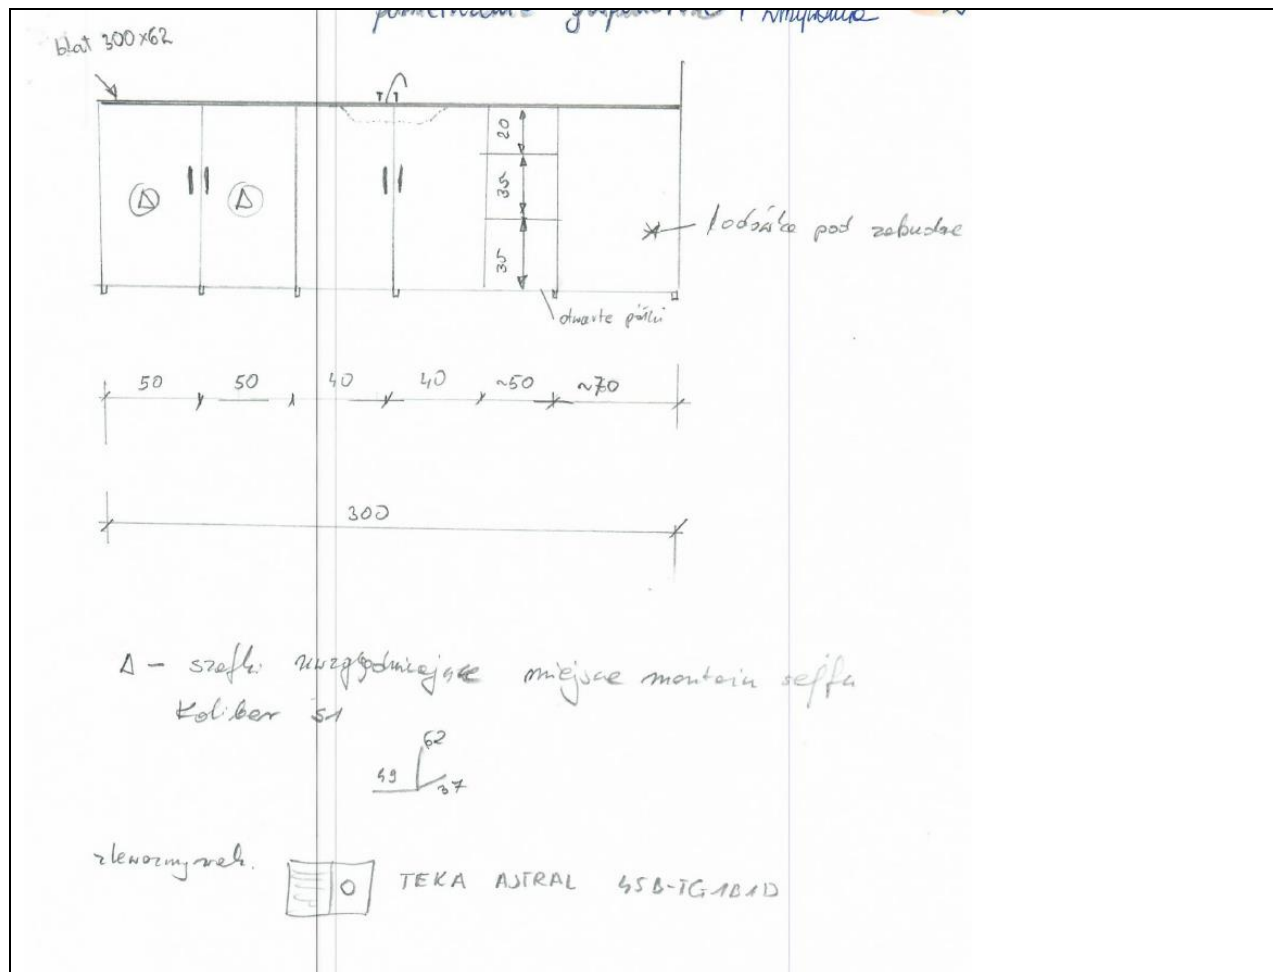 pomieszczenie gospodarcze i zmywalnia
blat 300x62
20
35
35
lodówka pod zabudowę
otwarte półki
50 50 40 40 ~50 ~70
300
Δ – szafki uwzględniające miejsce montażu sejfu
Koliber S1
62
49
37
zlewozmywak.
TEKA ASTRAL 45B-TG 1B1D